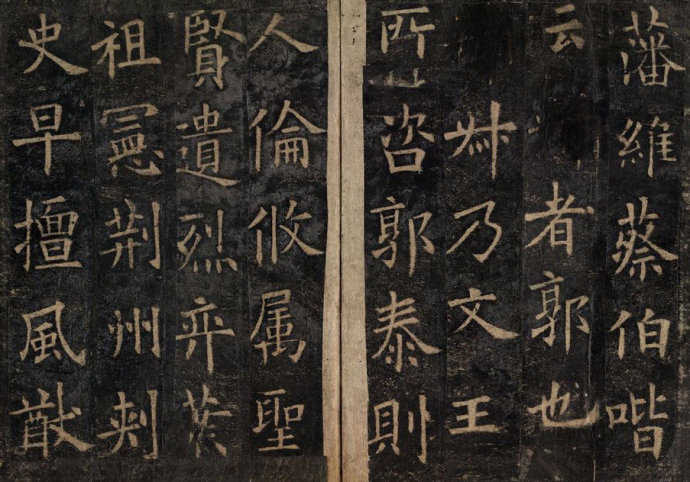 藩維蔡伯喈
云者郭也
叔乃文王
所咨郭泰則
人倫攸属聖
賢遺烈弈葉
祖憲荊州刺
史早擅風猷